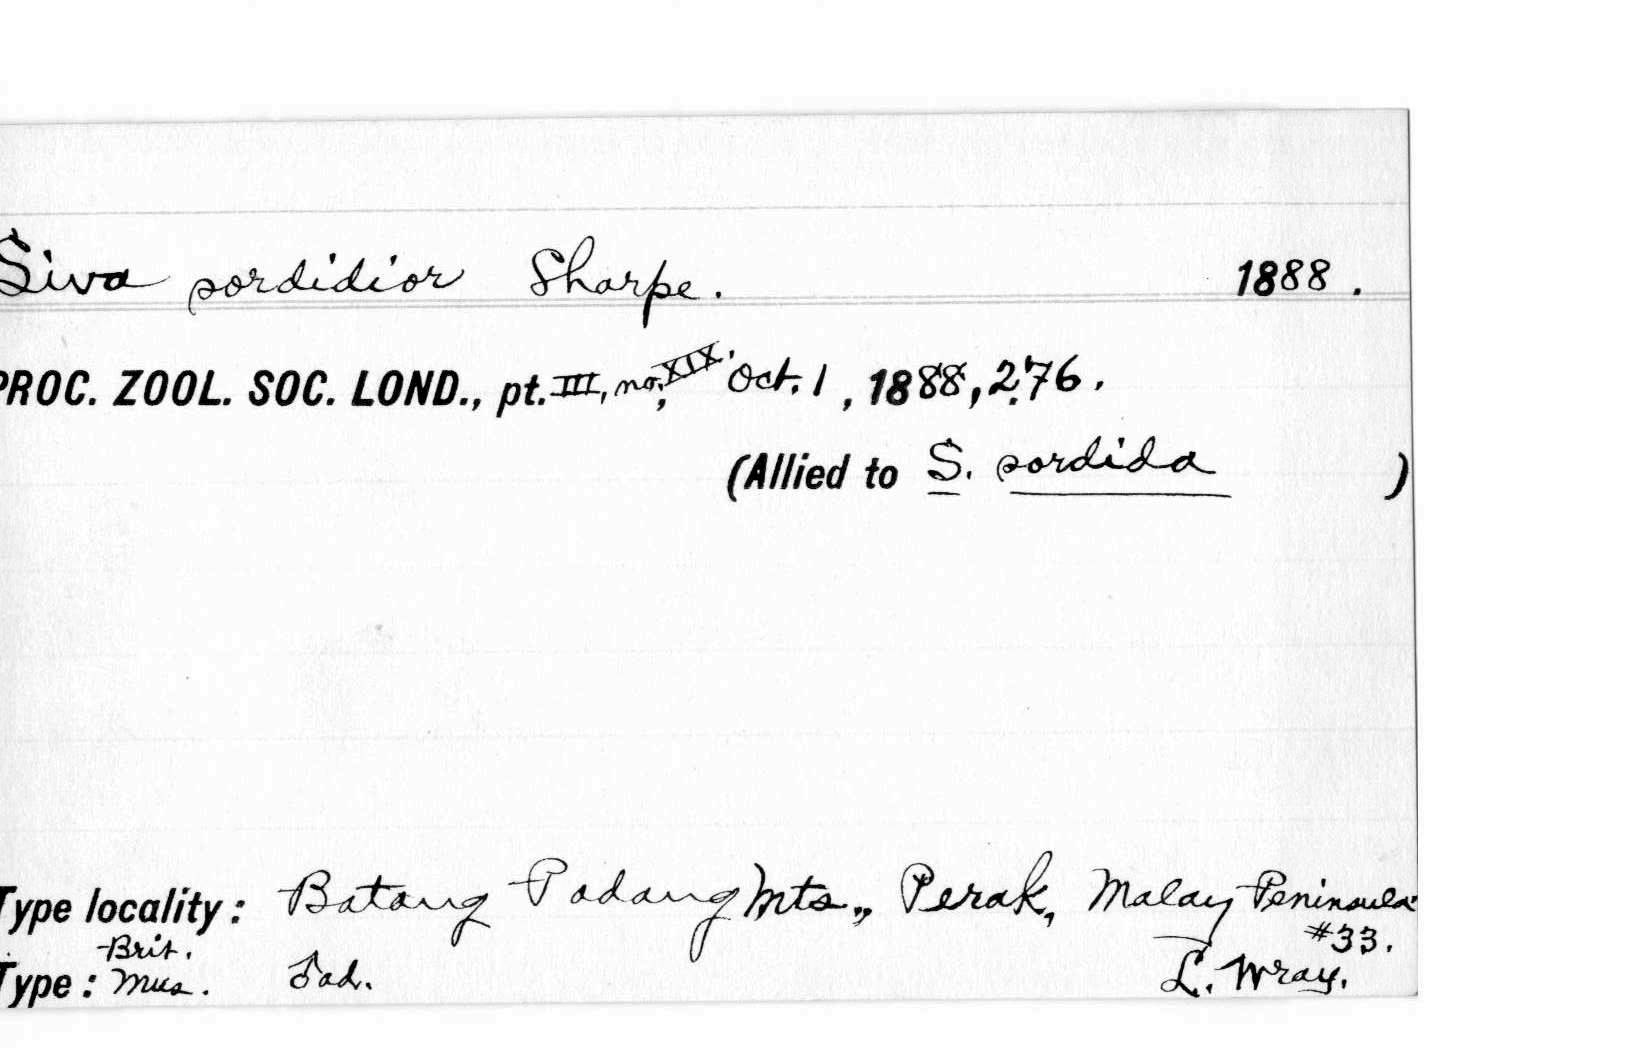 Siva sordidior Sharpe. 1888.
PROC. ZOOL. SOC. LOND., pt. III, no. XIX, Oct. 1, 1888, 276.
(Allied to S. sordida )
Type locality: Batang Padang Mts., Perak, Malay Peninsula
Brit. #33.
Type: Mus. ♂ ad. L. Wray.